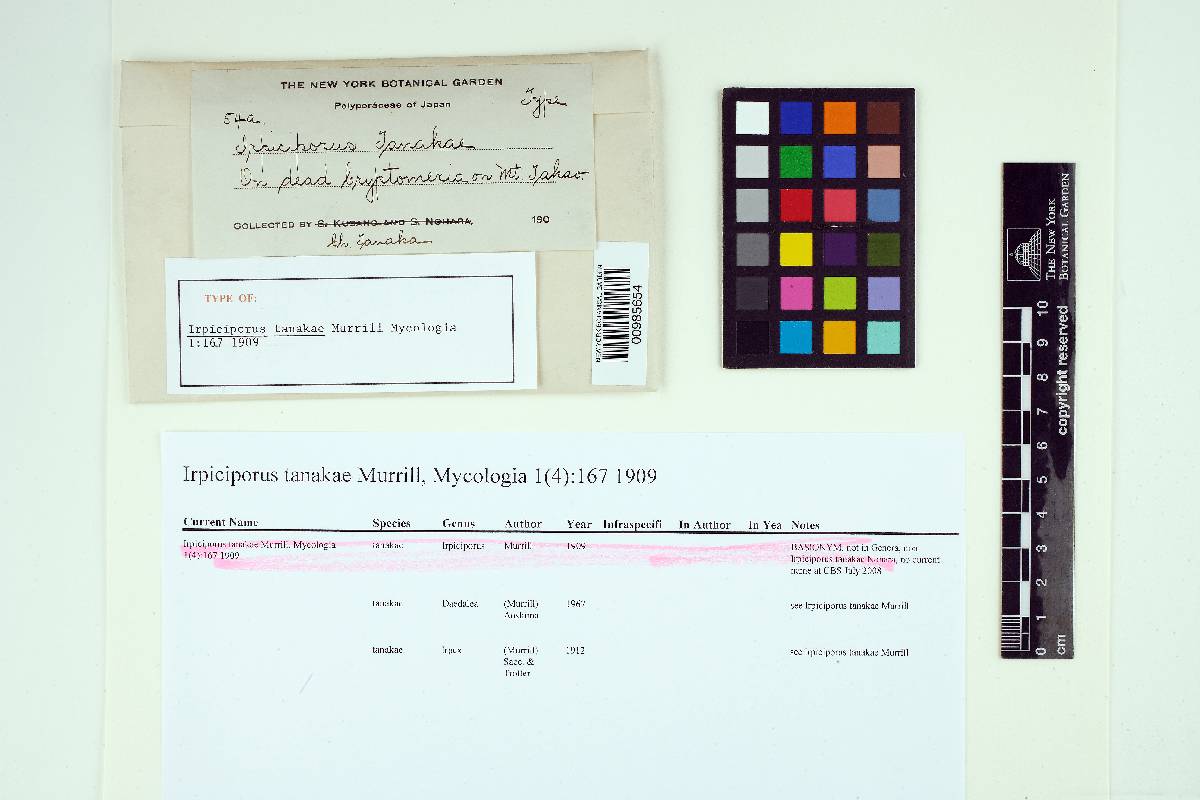 THE NEW YORK BOTANICAL GARDEN
Polyporaceae of Japan
Type
54a.
Irpiciporus Tanakae
On dead Cryptomeria on Mt. Takao
COLLECTED BY S. KUSANO AND S. NOHARA, 190
Ch. Tanaka
TYPE OF:
Irpiciporus tanakae Murrill Mycologia
1:167 1909
NEW YORK BOTANICAL GARDEN
00985654
Irpiciporus tanakae Murrill, Mycologia 1(4):167 1909
Current Name Species Genus Author Year Infraspecifi In Author In Yea Notes
Irpiciporus tanakae Murrill, Mycologia tanakae Irpiciporus Murrill 1909 BASIONYM, not in Genera, non
1(4):167 1909 Irpiciporus tanakae Nohara, no current
name at CBS July 2008
tanakae Daedalea (Murrill) 1967 see Irpiciporus tanakae Murrill
Aoshima
tanakae Irpex (Murrill) 1912 see Irpiciporus tanakae Murrill
Sacc. &
Trotter
THE NEW YORK
BOTANICAL GARDEN
copyright reserved
0 1 2 3 4 5 6 7 8 9 10
cm